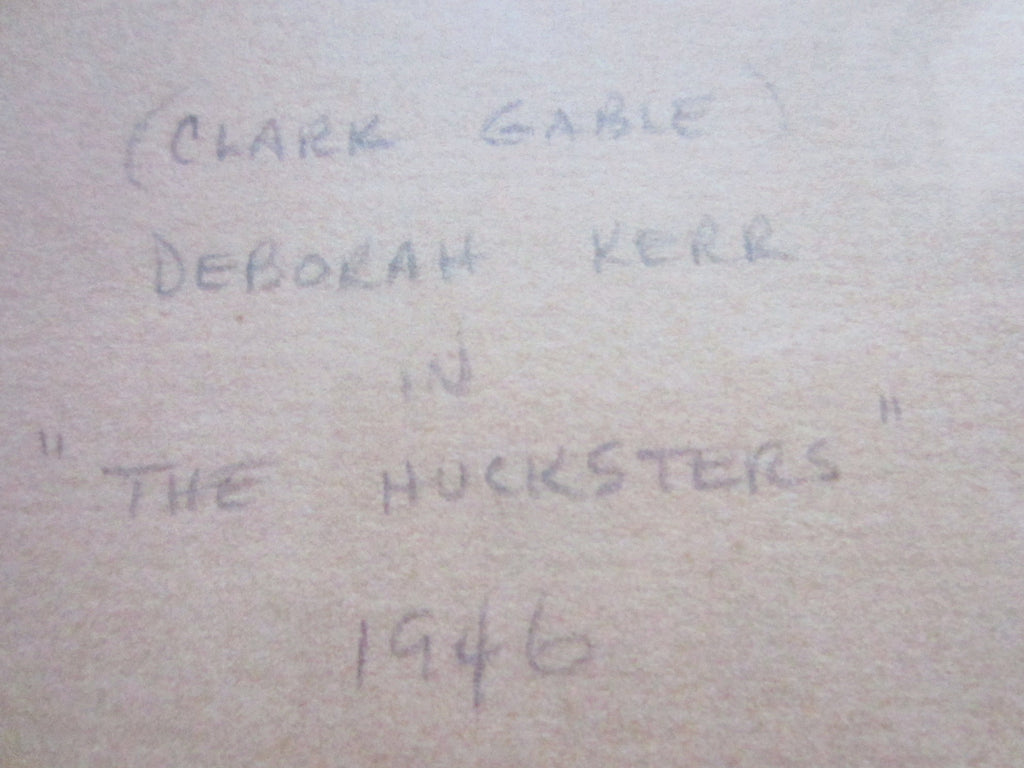 (CLARK GABLE)
DEBORAH KERR
IN
"THE HUCKSTERS"
1946